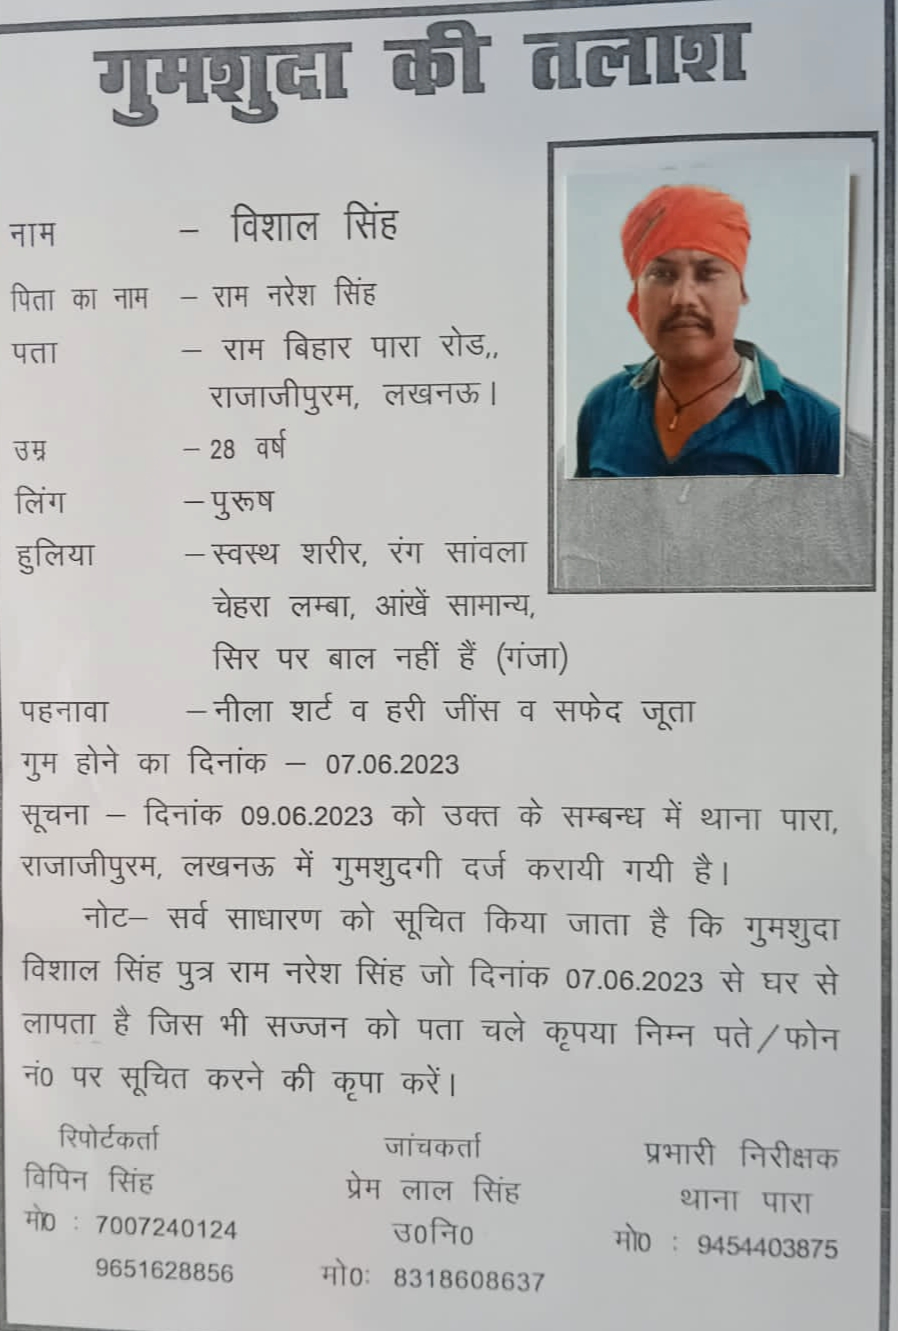 गुमशुदा की तलाश
नाम – विशाल सिंह
पिता का नाम – राम नरेश सिंह
पता – राम बिहार पारा रोड,,
राजाजीपुरम, लखनऊ।
उम्र – 28 वर्ष
लिंग – पुरूष
हुलिया – स्वस्थ शरीर, रंग सांवला
चेहरा लम्बा, आंखें सामान्य,
सिर पर बाल नहीं हैं (गंजा)
पहनावा – नीला शर्ट व हरी जींस व सफेद जूता
गुम होने का दिनांक – 07.06.2023
सूचना – दिनांक 09.06.2023 को उक्त के सम्बन्ध में थाना पारा,
राजाजीपुरम, लखनऊ में गुमशुदगी दर्ज करायी गयी है।
नोट– सर्व साधारण को सूचित किया जाता है कि गुमशुदा
विशाल सिंह पुत्र राम नरेश सिंह जो दिनांक 07.06.2023 से घर से
लापता है जिस भी सज्जन को पता चले कृपया निम्न पते/फोन
नं0 पर सूचित करने की कृपा करें।
रिपोर्टकर्ता
विपिन सिंह
मो0 : 7007240124
9651628856
जांचकर्ता
प्रेम लाल सिंह
उ0नि0
मो0: 8318608637
प्रभारी निरीक्षक
थाना पारा
मो0 : 9454403875